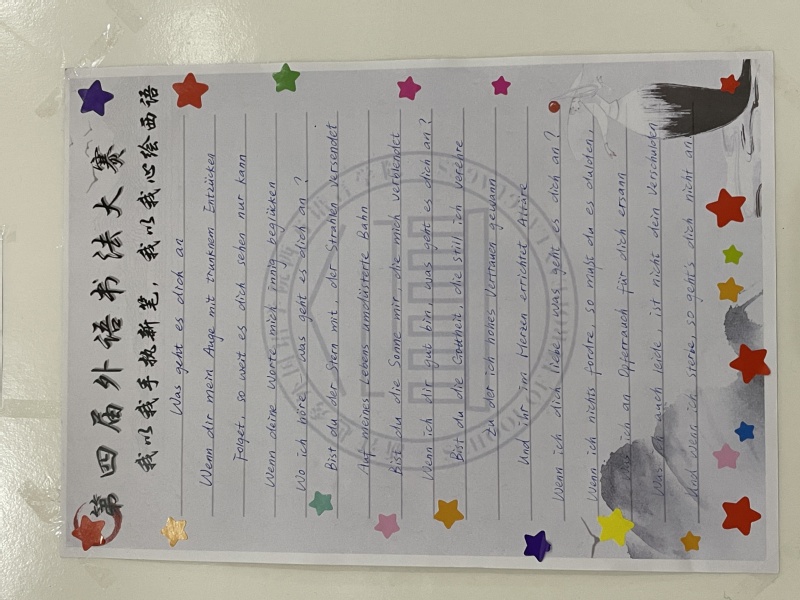 第四届外语书法大赛
我以我手执新笔，我以我心绘西语
Was geht es dich an
Wenn dir mein Auge mit trunknem Entzücken
Folget, so weit es dich sehen nur kann
Wenn deine Worte mich innig beglücken
Wo ich höre, was geht es dich an?
Bist du der Stern mit, der Strahlen versendet
Auf meines Lebens umdüsterte Bahn
Bist du die Sonne mir, die mich verblendet
Wenn ich dir gut bin, was geht es dich an?
Bist du die Gottheit, die still ich verehre
Zu der ich hohes Vertrauen gewann
Und ihr im Herzen errichtet Altäre
Wenn ich dich liebe, was geht es dich an?
Wenn ich nichts fordre, so mußt du es dulden,
ich an Opferrauch für dich ersann
Was ich auch leide, ist nicht dein Verschulden
Und wenn ich sterbe, so geht's dich nicht an